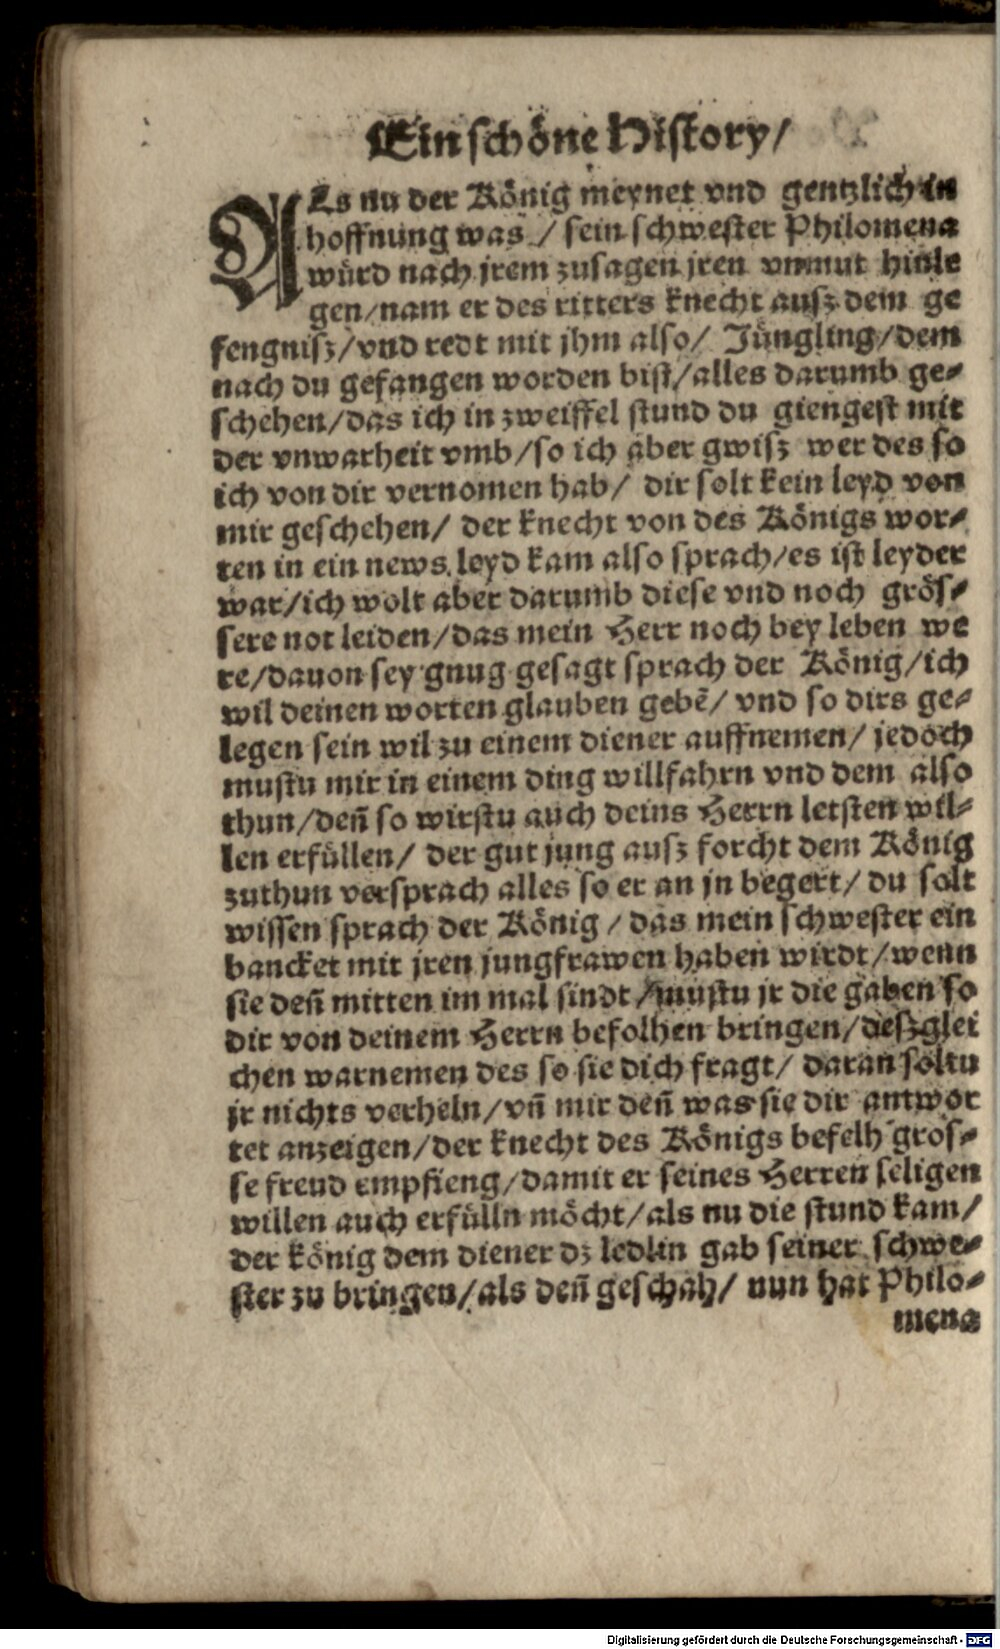 Ein schöne History/
ALs nu der König meynet vnd gentzlich in
hoffnung was / sein schwester Philomena
würd nach jrem zusagen jren vnmut hinle
gen/nam er des ritters knecht ausz dem ge
fengnisz/vnd redt mit jhm also/ Jüngling/dem
nach du gefangen worden bist/alles darumb ge-
schehen/das ich in zweiffel stund du giengest mit
der vnwarheit vmb/so ich aber gwisz wer des so
ich von dir vernomen hab/ dir solt kein leyd von
mir geschehen/ der knecht von des Königs wor-
ten in ein news leyd kam also sprach/es ist leyder
war/ich wolt aber darumb diese vnd noch grös-
sere not leiden/das mein Herr noch bey leben we
re/dauon sey gnug gesagt sprach der König/ich
wil deinen worten glauben gebē/ vnd so dirs ge-
legen sein wil zu einem diener auffnemen/ jedoch
mustu mir in einem ding willfahrn vnd dem also
thun/deñ so wirstu auch deins Herrn letsten wil-
len erfüllen/ der gut jung ausz forcht dem König
zuthun versprach alles so er an jn begert/ du solt
wissen sprach der König / das mein schwester ein
bancket mit jren jungfrawen haben wirdt/wenn
sie deñ mitten im mal sindt /mustu jr die gaben so
dir von deinem Herrn befolhen bringen/deszglei
chen warnemen des so sie dich fragt/ daran soltu
jr nichts verheln/vñ mir deñ was sie dir antwor
tet anzeigen/der knecht des Königs befelh gros-
se freud empfieng/damit er seines Herren seligen
willen auch erfülln möcht/als nu die stund kam/
der könig dem diener dz ledlin gab seiner schwe-
ster zu bringen/als deñ geschah/ nun hat Philo-
mena
Digitalisierung gefördert durch die Deutsche Forschungsgemeinschaft - DFG